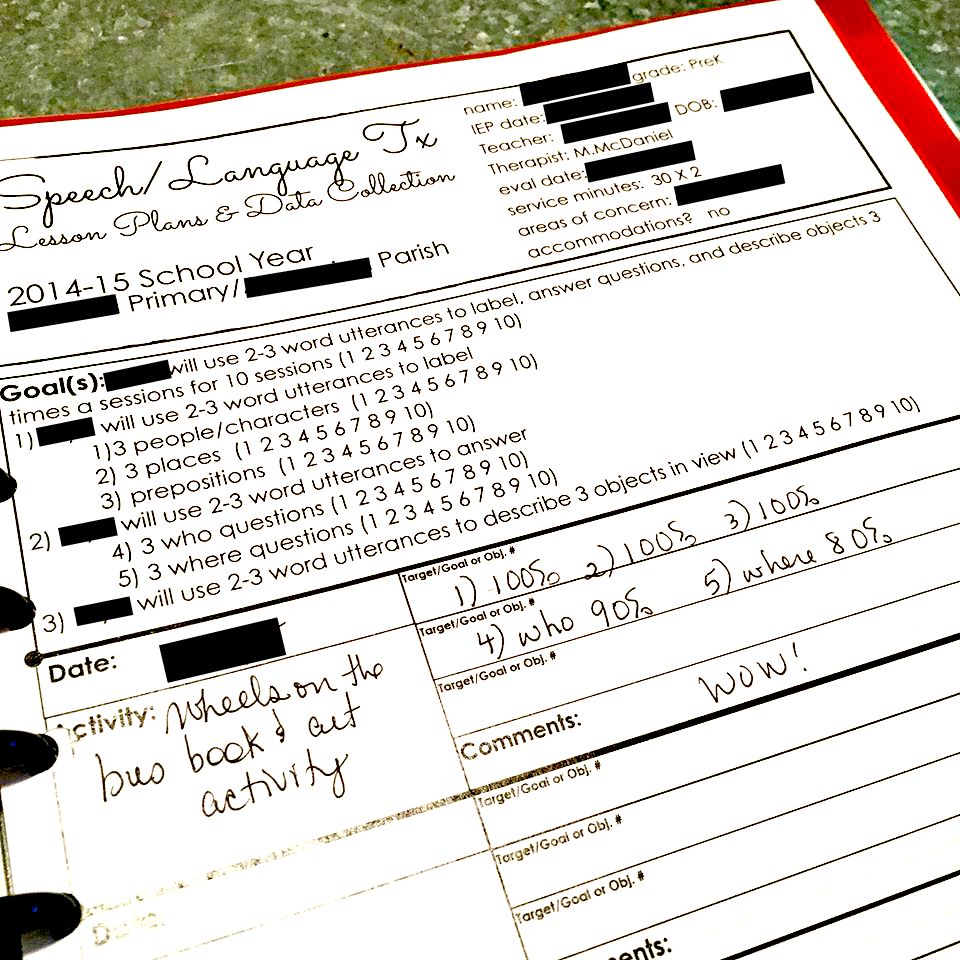 Speech/Language Tx
Lesson Plans & Data Collection
2014-15 School Year
Primary/ Parish
name: grade: PreK
IEP date:
Teacher: DOB:
Therapist: M.McDaniel
eval date:
service minutes: 30 X 2
areas of concern:
accommodations? no
Goal(s): will use 2-3 word utterances to label, answer questions, and describe objects 3
times a sessions for 10 sessions (1 2 3 4 5 6 7 8 9 10)
1) will use 2-3 word utterances to label
1)3 people/characters (1 2 3 4 5 6 7 8 9 10)
2) 3 places (1 2 3 4 5 6 7 8 9 10)
3) prepositions (1 2 3 4 5 6 7 8 9 10)
2) will use 2-3 word utterances to answer
4) 3 who questions (1 2 3 4 5 6 7 8 9 10)
5) 3 where questions (1 2 3 4 5 6 7 8 9 10)
3) will use 2-3 word utterances to describe 3 objects in view (1 2 3 4 5 6 7 8 9 10)
Date:
Activity: Wheels on the
bus book & cut
activity
Target/Goal or Obj. #
1) 100% 2) 100% 3) 100%
Target/Goal or Obj. #
4) who 90% 5) where 80%
Target/Goal or Obj. #
Comments: WOW!
Target/Goal or Obj. #
Target/Goal or Obj. #
Target/Goal or Obj. #